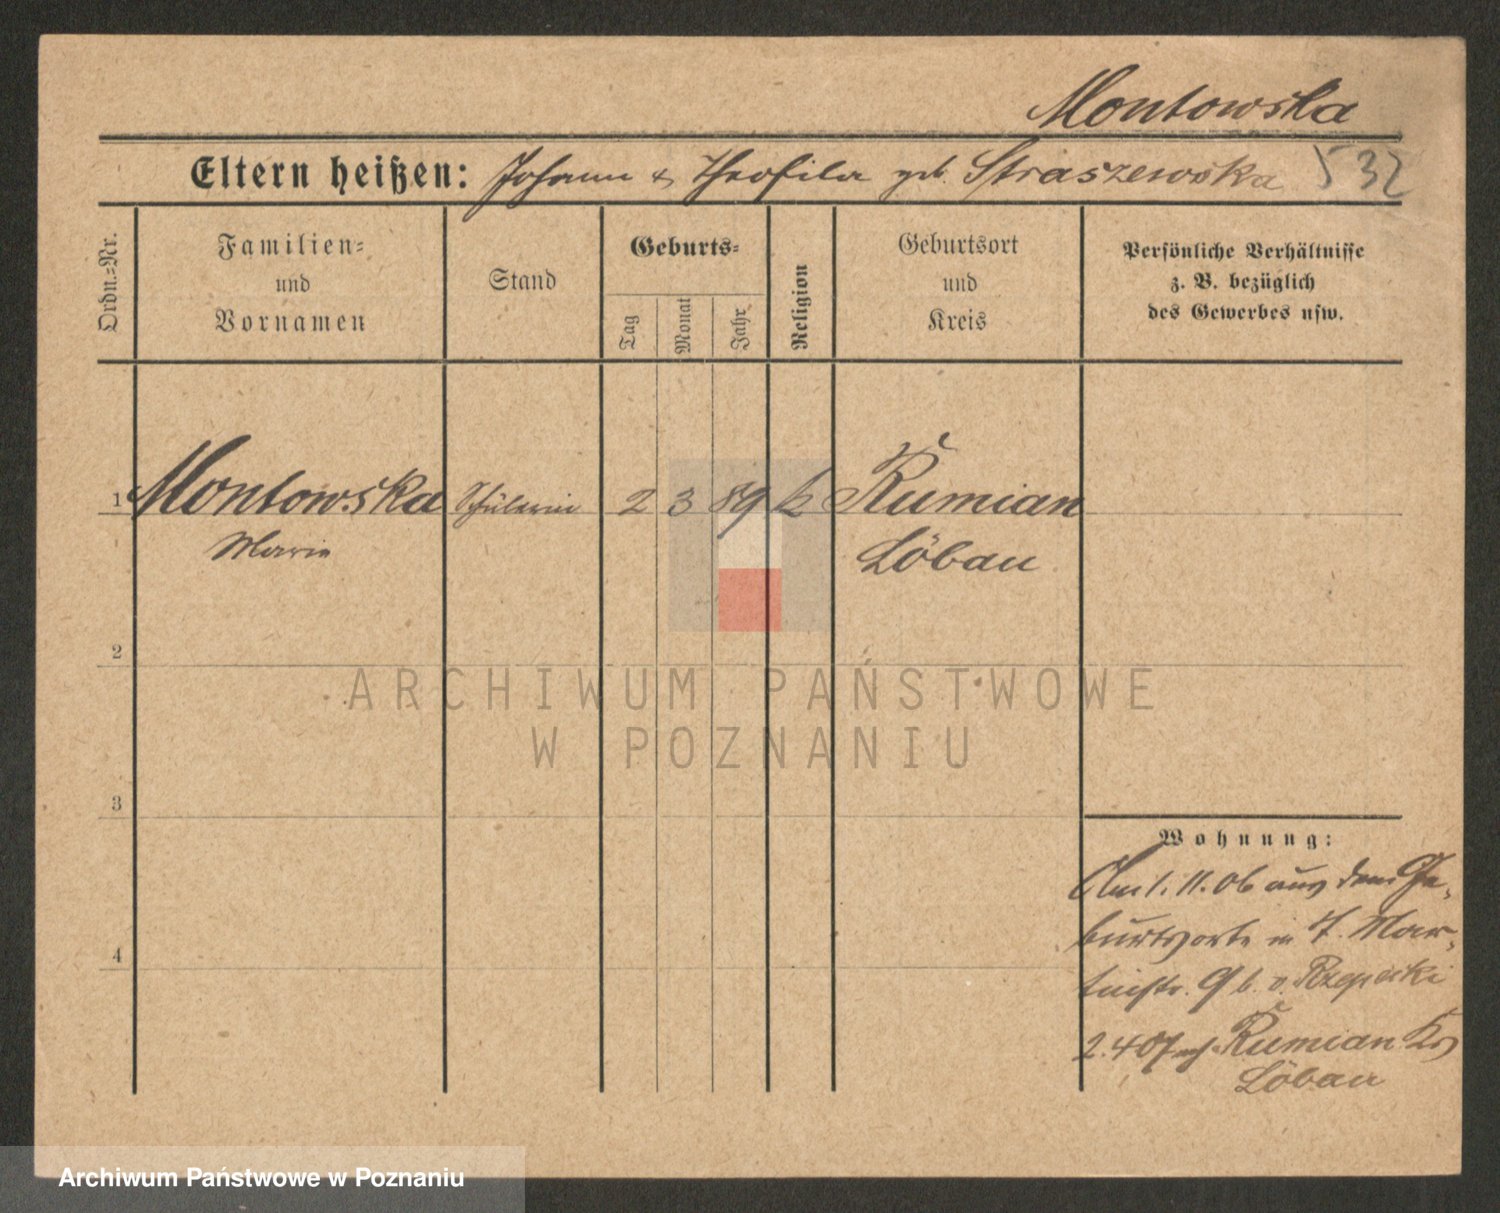 Montowska
Eltern heißen: Johann & Theofila geb. Straszewska 532
Ordn.-Nr.
Familien-
und
Vornamen
Stand
Geburts-
Tag
Monat
Jahr
Religion
Geburtsort
und
Kreis
Persönliche Verhältnisse
z. B. bezüglich
des Gewerbes usw.
1 Montowska Schülerin 2 3 89 k Rumian
Marie Löbau
2
ARCHIWUM PAŃSTWOWE
W POZNANIU
3
Wohnung:
Am 1. 11. 06 aus dem Ge-
burtsorte in Mar-
tinstr. 9 b. v. Rzepecki
4
2. 4 07 nach Rumian Krs
Löbau
Archiwum Państwowe w Poznaniu